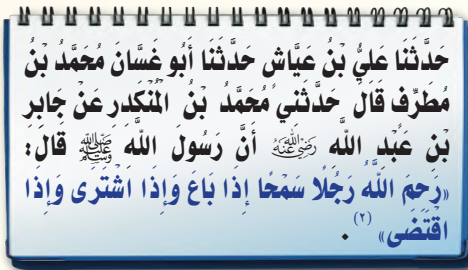 حَدَّثَنَا عَلِيُّ بْنُ عَيَّاشٍ حَدَّثَنَا أَبُو غَسَّانَ مُحَمَّدُ بْنُ
مُطَرِّفٍ قَالَ حَدَّثَنِي مُحَمَّدُ بْنُ الْمُنْكَدِرِ عَنْ جَابِرِ
بْنِ عَبْدِ اللَّهِ رَضِيَ اللَّهُ عَنْهُ أَنَّ رَسُولَ اللَّهِ ﷺ قَالَ:
«رَحِمَ اللَّهُ رَجُلًا سَمْحًا إِذَا بَاعَ وَإِذَا اشْتَرَى وَإِذَا
اقْتَضَى» (٢) .